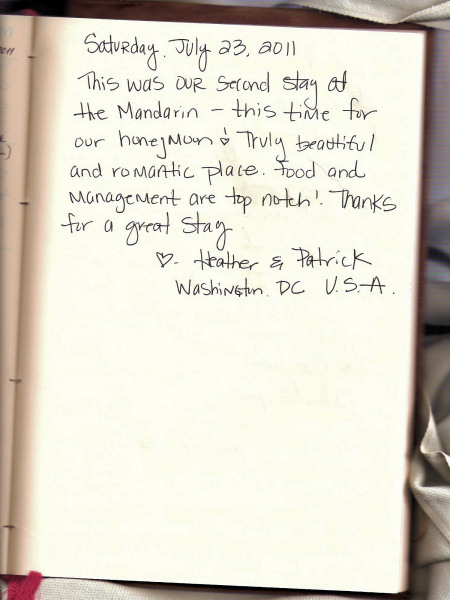 Saturday, July 23, 2011
This was our second stay at
the Mandarin – this time for
our honeymoon! Truly beautiful
and romantic place. Food and
management are top notch! Thanks
for a great stay
♡ - Heather & Patrick
Washington, DC U.S.A.